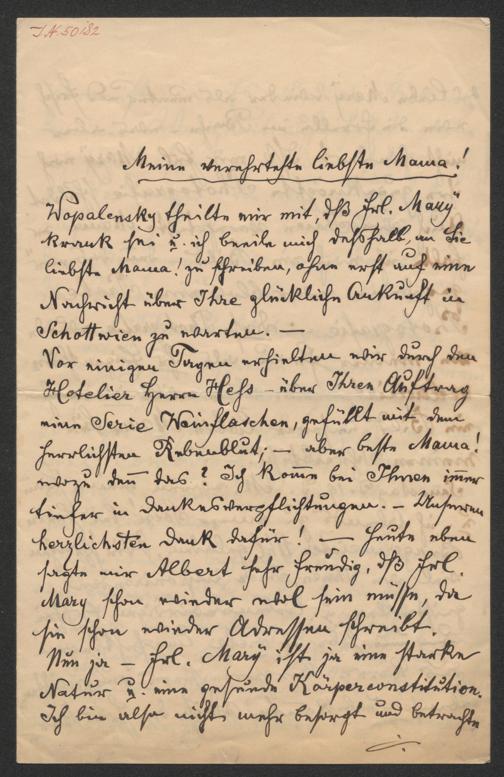 I.N. 50182
Meine verehrteste liebste Mama!
Wopalensky theilte mir mit, dß Frl. Marÿ
krank sei u. ich beeile mich deßhalb, an Sie
liebste Mama! zu schreiben, ohne erst auf eine
Nachricht über Ihre glückliche Ankunft in
Schottwien zu warten. —
Vor einigen Tagen erhielten wir durch den
Hotelier Herrn Heß – über Ihren Auftrag
eine Serie Weinflaschen, gefüllt mit dem
herrlichsten Rebenblut; – aber beste Mama!
wozu den̅ das? Ich kom̅e bei Ihnen im̅er
tiefer in Dankesverpflichtungen. – Unseren
herzlichsten Dank dafür! — Heute eben
sagte mir Albert sehr freudig, dß Frl.
Mary schon wieder wol sein müsse, da
sie schon wieder Adressen schreibt.
Nun ja – Frl. Marÿ ist ja eine starke
Natur u. eine gesunde Körperconstitution.
Ich bin also nicht mehr besorgt und betrachte